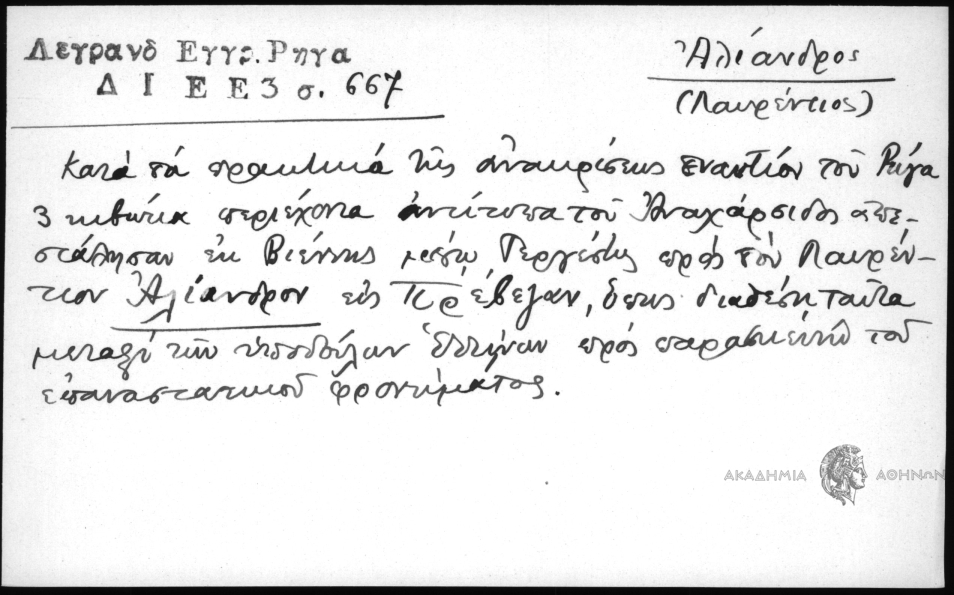 Λεγρανδ Εγγρ. Ρηγα
Δ Ι Ε Ε 3 σ. 667
Ἀλίανδρος
(Λαυρέντιος)
Κατὰ τὰ πρακτικά τῆς ἀνακρίσεως ἐναντίον τοῦ Ρήγα
3 κιβώτια περιέχοντα ἀντίτυπα τοῦ Ἀναχάρσιδος ἀπε-
στάλησαν ἐκ Βιέννης μέσῳ Τεργέστης πρὸς τὸν Λαυρέν-
τιον Ἀλίανδρον εἰς Πρέβεζαν, ὅπως διαθέσῃ ταῦτα
μεταξὺ τῶν ὑποδούλων Ἑλλήνων πρὸς παρασκευὴν τοῦ
ἐπαναστατικοῦ φρονήματος.
ΑΚΑΔΗΜΙΑ ΑΘΗΝΩΝ